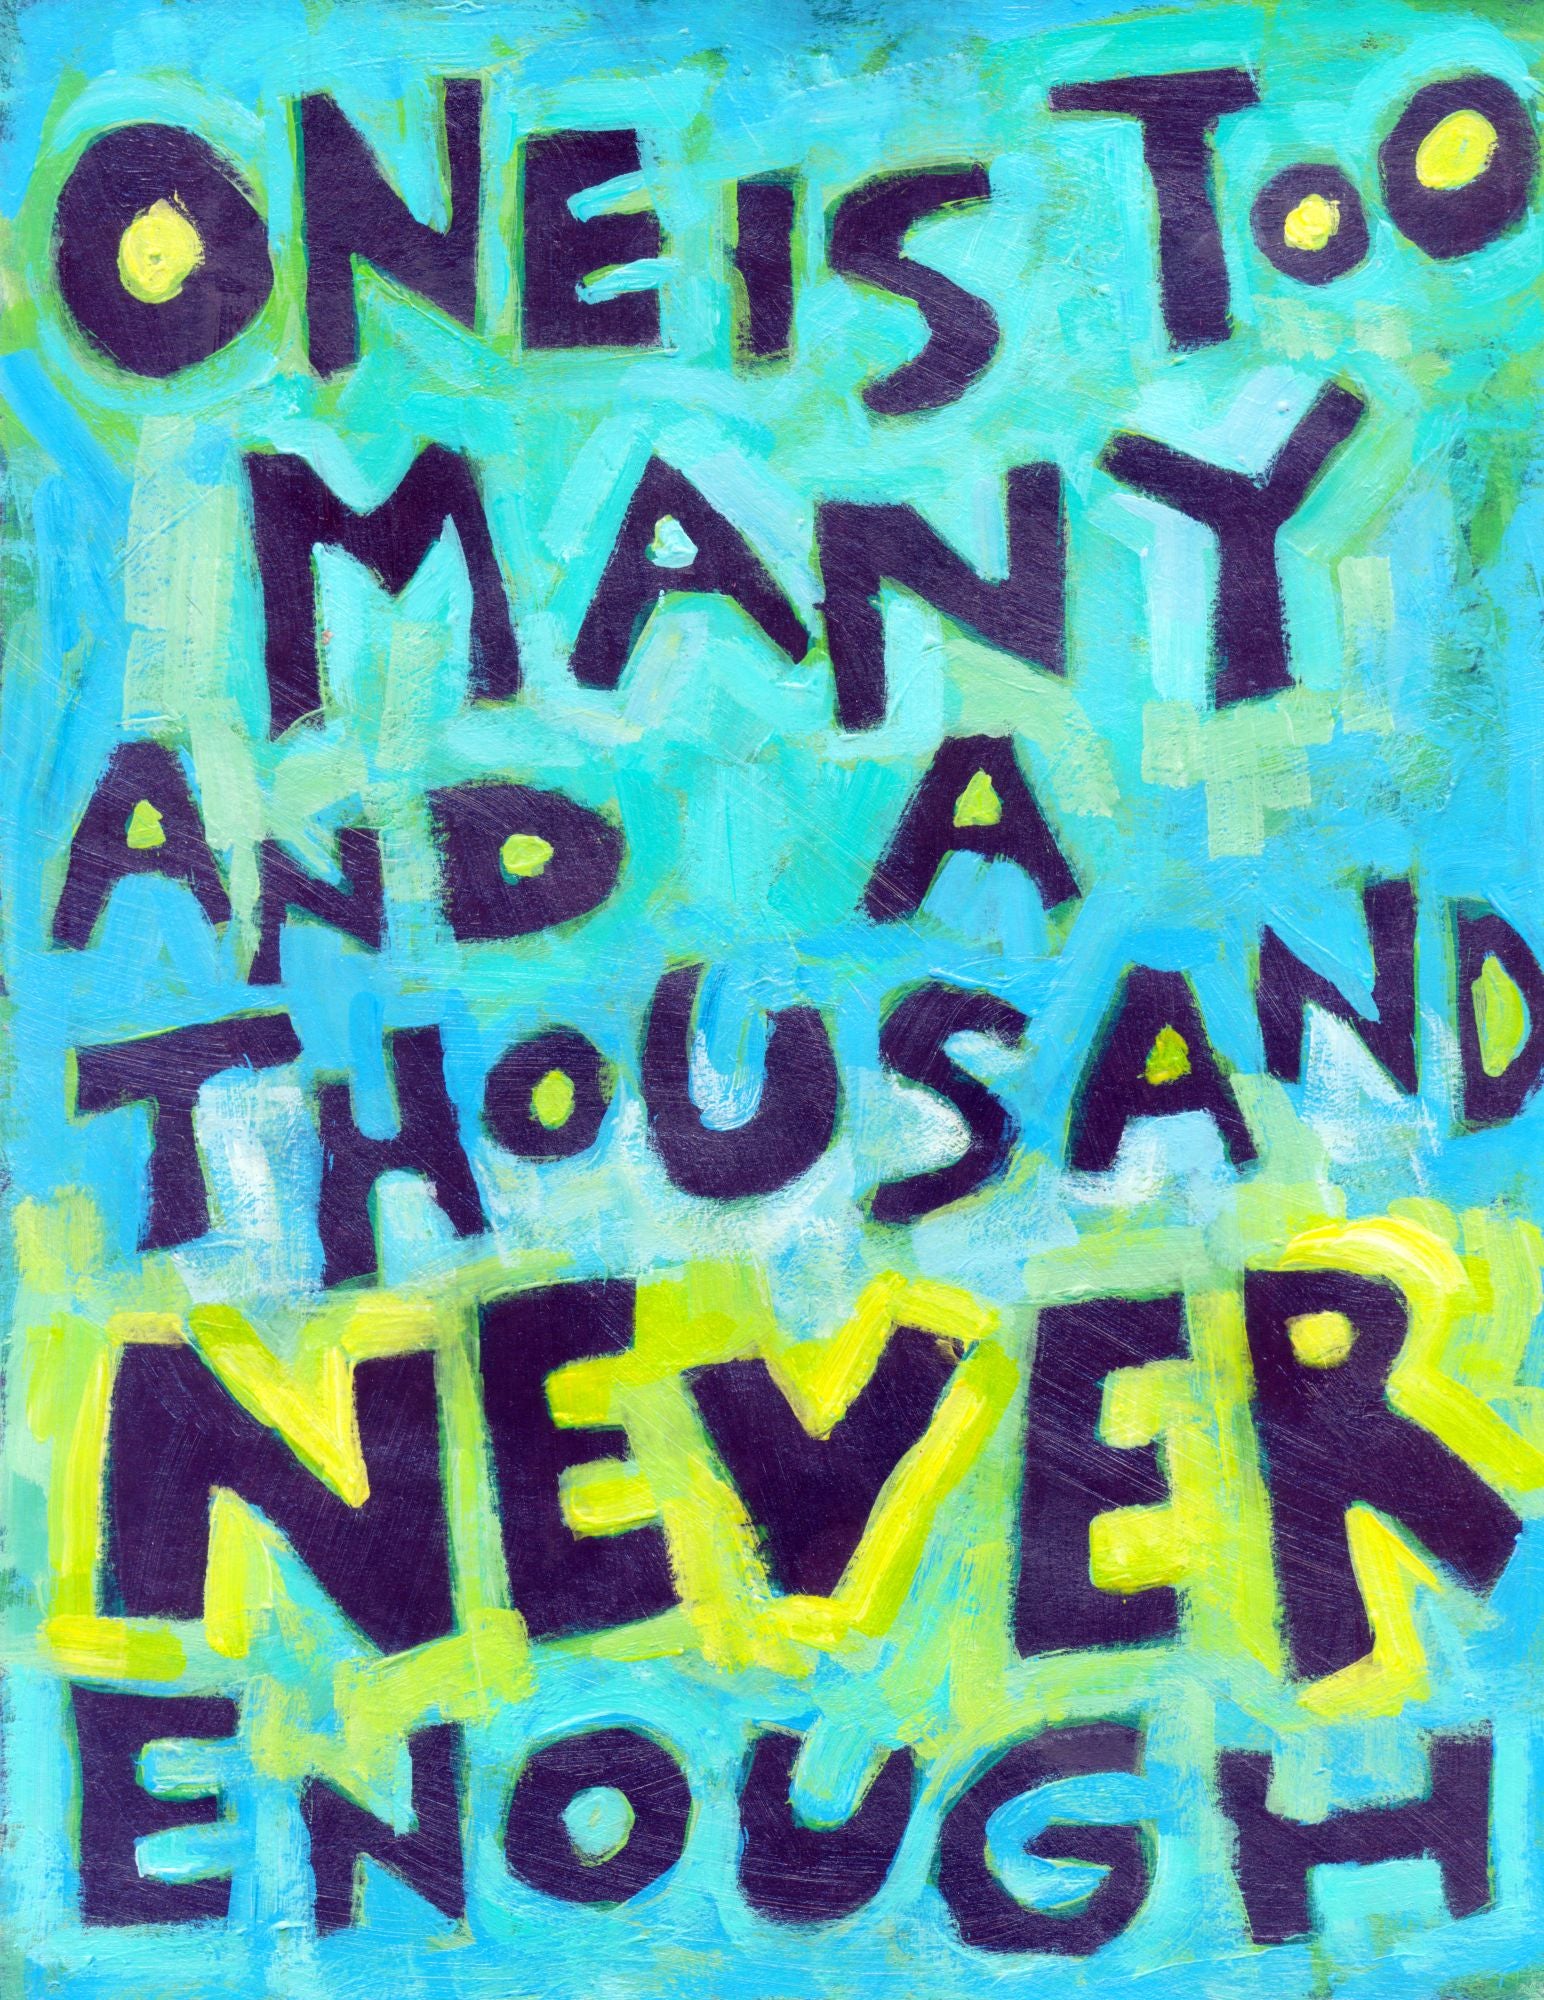 ONE IS TOO
MANY
AND A
THOUSAND
NEVER
ENOUGH